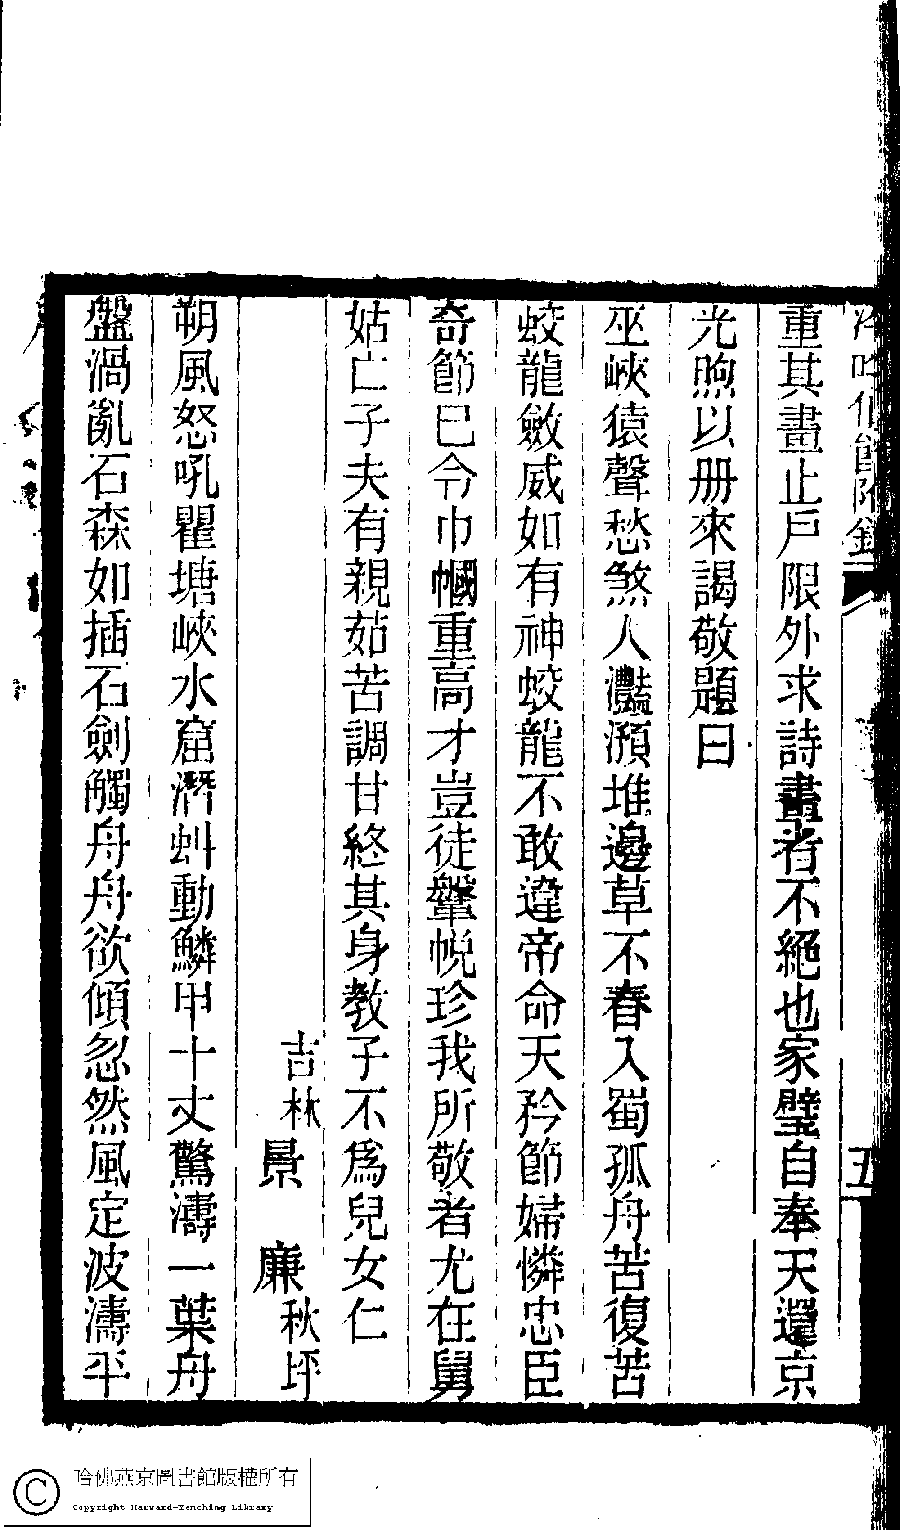 重其畫止戶限外求詩畫者不絕也家璧自奉天還京
光煦以册來謁敬題曰
巫峽猿聲愁煞人灩澦堆邊草不春入蜀孤舟苦復苦
蛟龍斂威如有神蛟龍不敢違帝命天矜節婦憐忠臣
奇節已令巾幗重高才豈徒鞶帨珍我所敬者尤在舅
姑亡子夫有親茹苦調甘終其身教子不爲兒女仁
吉林 景 廉 秋坪
朔風怒吼瞿塘峽水窟潛虯動鱗甲十丈驚濤一葉舟
盤渦亂石森如插石劍觸舟舟欲傾忽然風定波濤平
五
哈佛燕京圖書館版權所有
Copyright Harvard-Yenching Library